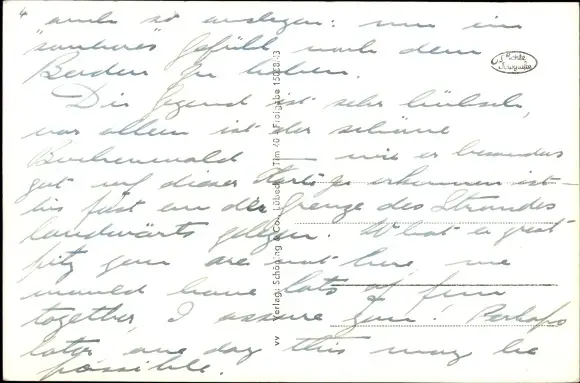 4
auch so anlegen: nur ein
"sauberes" Gefühl nach dem
Baden zu haben.
Die Gegend ist sehr hübsch,
vor allem ist der schöne
Buchenwald — wie er besonders
gut auf dieser Karte zu erkennen ist —
bis fast an die Grenze des Strandes
landwärts gelegen. What a great
pity you are not here, we
would have lots of fun
together, I assure you. Perhaps
later one day this may be
possible.
Echte Fotografie
vv Verlag: Schöning & Co., Lübeck Tim 40 Freigabe 1508/43